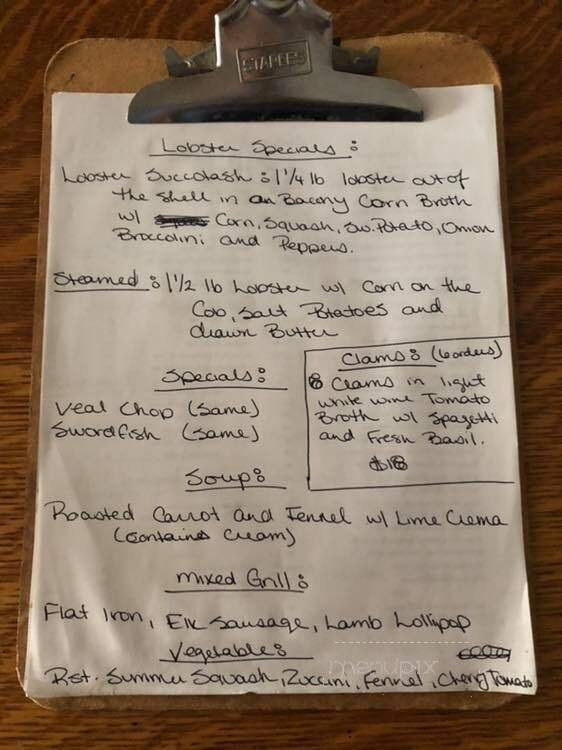 STAPLES
Lobster Specials:
Lobster Succotash: 1 1/4 lb lobster out of
the shell in an Bacony Corn Broth
w/ Corn, Squash, Sw. Potato, Onion
Broccolini and Peppers.
Steamed: 1 1/2 lb Lobster w/ Corn on the
Cob, Salt Potatoes and
drawn Butter
Clams: (6 orders)
8 Clams in light
white wine Tomato
Broth w/ Spagetti
and Fresh Basil.
$18
Specials:
Veal Chop (Same)
Swordfish (Same)
Soup:
Roasted Carrot and Fennel w/ Lime Crema
(Contains Cream)
Mixed Grill:
Flat Iron, Elk Sausage, Lamb Lollipop
Vegetables
menupix
Rst. Summer Squash, Zuccini, Fennel, Cherry Tomato